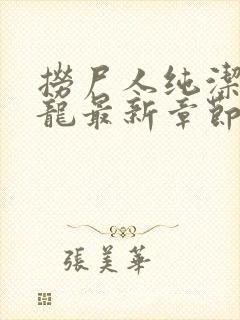 撈尸人纯潔
龍最新章節
張美華